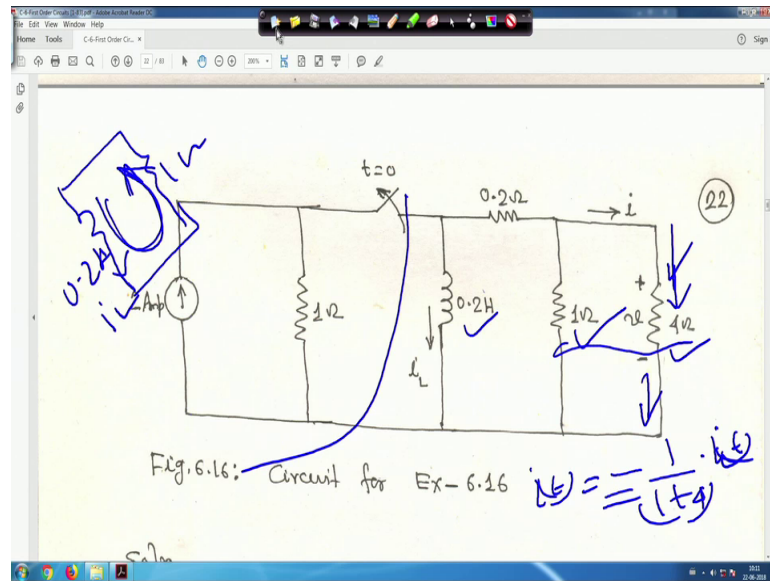 C-6-First Order Circuits [1-83].pdf - Adobe Acrobat Reader DC
File Edit View Window Help
Home Tools C-6-First Order Cir... × Sign
22 / 83 200%
t=0
0.2Ω
i
22
1Ω
0.2H
iL
Amp
1Ω
0.2H
iL
1Ω
+
v
-
4Ω
Fig. 6.16: Circuit for Ex-6.16
i(t) = 1/(1+4) . iL(t)
Soln
10:11
22-06-2018